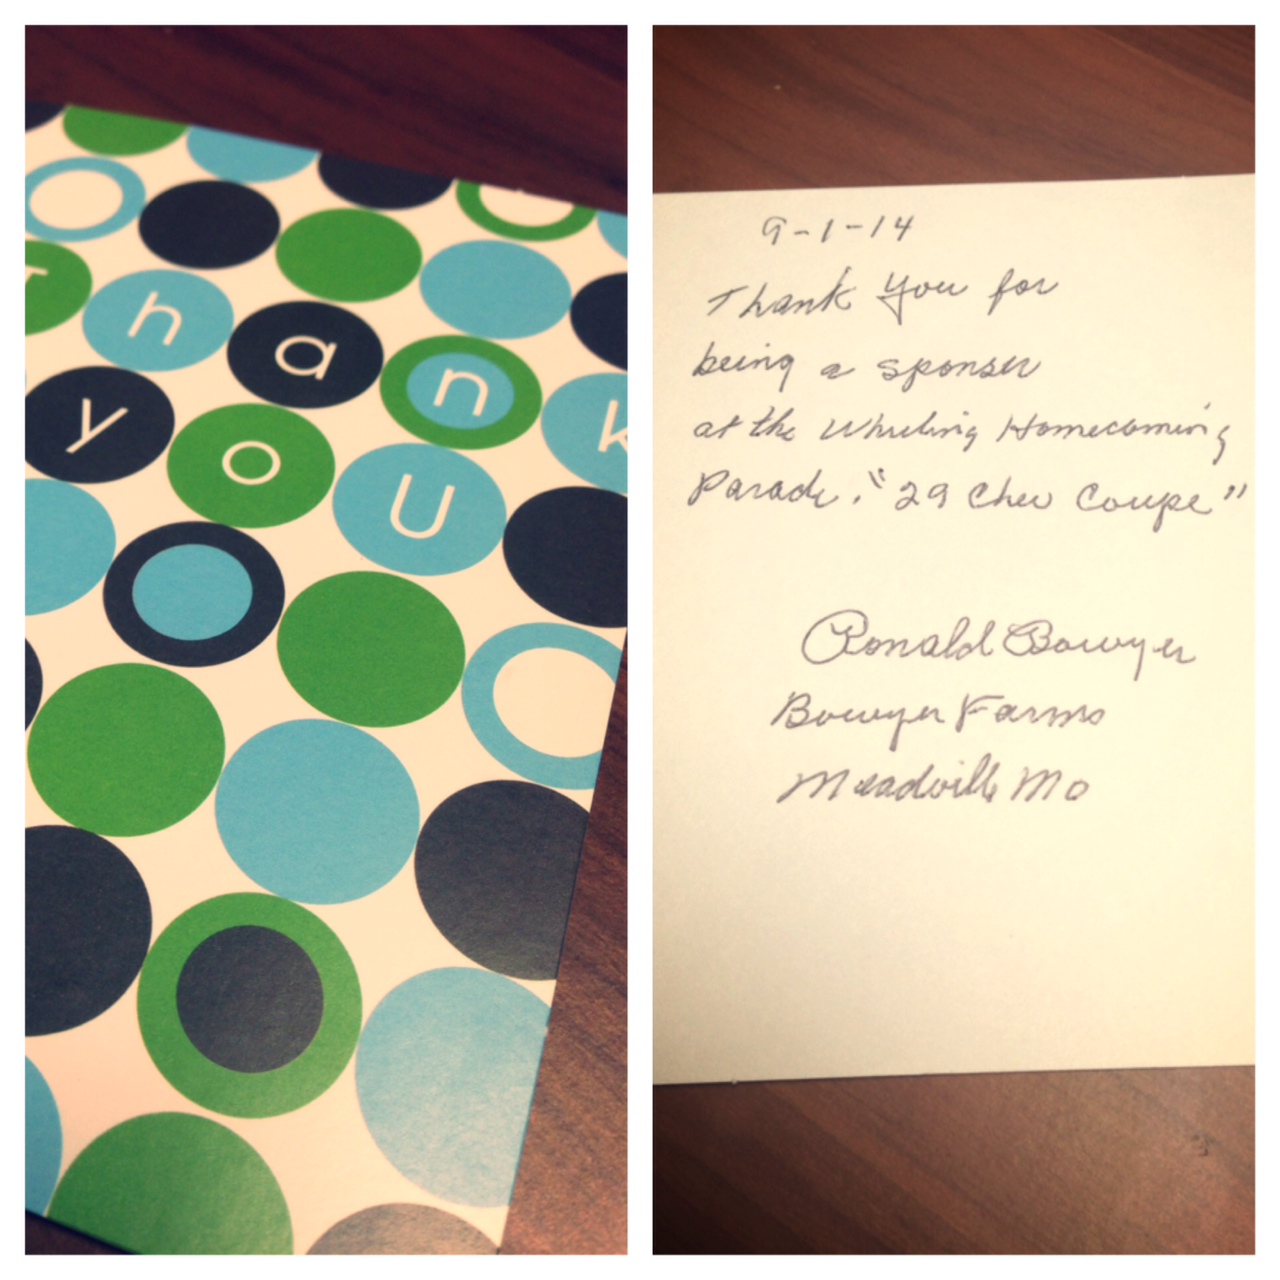 Thank
you
9-1-14
Thank You for
being a sponser
at the Wheeling Homecoming
Parade. "29 Chev Coupe"
Ronald Bowyer
Bowyer Farms
Meadville Mo